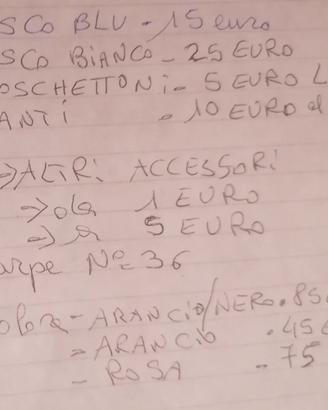 SCO BLU - 15 euro
SCO BIANCO - 25 EURO
OSCHETTONi - 5 EURO L
ANTi - 10 EURO al
→ ALTRi ACCESSORi
→ da 1 EURO
→ a 5 EURO
arpe Nº= 36
olore - ARANCiO/NERO. 85€
= ARANCiO . 45€
- ROSA - 75